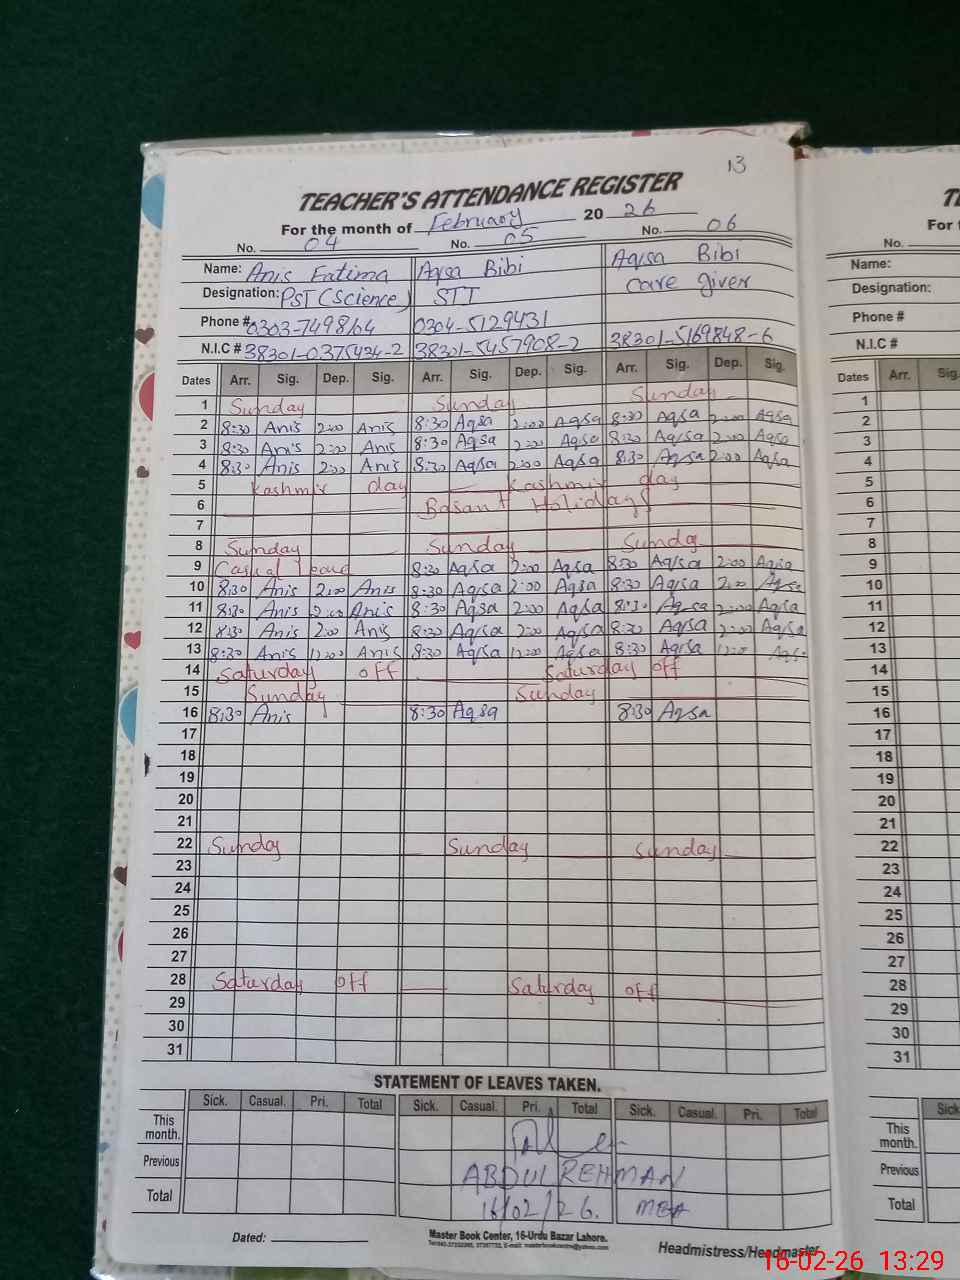 13
TEACHER'S ATTENDANCE REGISTER
For the month of February 2026
No. 04 No. 05 No. 06 No.
Name: Anis Fatima Aqsa Bibi Aqsa Bibi Name:
Designation: PST (Science) STT care giver Designation:
Phone # 0304-5129431 Phone #
N.I.C # 38301-0375434-2 38301-5457908-2 38301-5169848-6 N.I.C #
Dates Arr. Sig. Dep. Sig. Arr. Sig. Dep. Sig. Arr. Sig. Dep. Sig. Dates Arr. Sig.
1 Sunday Sunday Sunday 1
2 8:30 Anis 2:00 Anis 8:30 Aqsa 2:00 Aqsa 8:30 Aqsa 2:00 Aqsa 2
3 8:30 Anis 2:00 Anis 8:30 Aqsa 2:00 Aqsa 8:30 Aqsa 2:00 Aqsa 3
4 8:30 Anis 2:00 Anis 8:30 Aqsa 2:00 Aqsa 8:30 Aqsa 2:00 Aqsa 4
5 Kashmir day Kashmir day 5
6 Basant Holidays 6
7 7
8 Sunday Sunday Sunday 8
9 Casual 8:30 Aqsa 2:00 Aqsa 8:30 Aqsa 2:00 Aqsa 9
10 8:30 Anis 2:00 Anis 8:30 Aqsa 2:00 Aqsa 8:30 Aqsa 2:00 Aqsa 10
11 8:30 Anis 2:00 Anis 8:30 Aqsa 2:00 Aqsa 8:30 Aqsa 2:00 Aqsa 11
12 8:30 Anis 2:00 Anis 8:30 Aqsa 2:00 Aqsa 8:30 Aqsa 2:00 Aqsa 12
13 8:30 Anis 12:00 Anis 8:30 Aqsa 12:00 Aqsa 8:30 Aqsa 12:00 Aqsa 13
14 Saturday off Saturday off 14
15 Sunday Sunday 15
16 8:30 Anis 8:30 Aqsa 8:30 Aqsa 16
17 17
18 18
19 19
20 20
21 21
22 Sunday Sunday Sunday 22
23 23
24 24
25 25
26 26
27 27
28 Saturday off Saturday off 28
29 29
30 30
31 31
STATEMENT OF LEAVES TAKEN.
Sick. Casual. Pri. Total Sick. Casual. Pri. Total Sick. Casual. Pri. Total
This month. This month.
Previous ABDUL REHMAN Previous
Total 16/02/26. MEA Total
Dated: Master Book Center, 16-Urdu Bazar Lahore. Headmistress/Headmaster
16-02-26 13:29